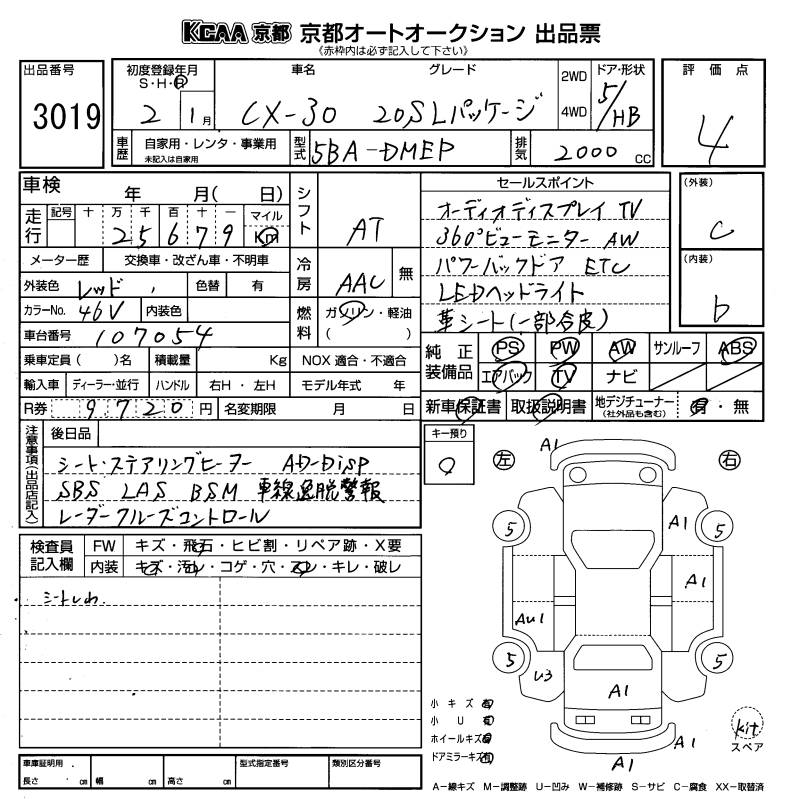 KCAA 京都 京都オートオークション 出品票
《赤枠内は必ず記入して下さい》
出品番号 3019
初度登録年月 S・H・R 2 1月
車名 グレード CX-30 20S Lパッケージ
2WD 4WD
ドア・形状 5/HB
評価点 4
車歴 自家用・レンタ・事業用 未記入は自家用
型式 5BA-DMEP
排気 2000 cc
車検 年 月( 日)
走行 記号 十 万 千 百 十 一 マイル Km
2 5 6 7 9
メーター歴 交換車・改ざん車・不明車
外装色 レッド 色替 有
カラーNo. 46V 内装色
車台番号 107054
乗車定員( )名 積載量 Kg NOX 適合・不適合
輸入車 ディーラー・並行 ハンドル 右H・左H モデル年式 年
R券 9720 円 名変期限 月 日
シフト AT
冷房 AAC 無
燃料 ガソリン・軽油 ( )
セールスポイント
オーディオディスプレイ TV
360°ビューモニター AW
パワーバックドア ETC
LEDヘッドライト
革シート(一部合皮)
(外装) C
(内装) b
純正装備品 PS PW AW サンルーフ ABS
エアバック TV ナビ
新車保証書 取扱説明書 地デジチューナー (社外品も含む) 有・無
注意事項(出品店記入) 後日品
シート・ステアリングヒーター AD-DISP
SBS LAS BSM 車線逸脱警報
レーダークルーズコントロール
キー預り 0
検査員記入欄 FW キズ・飛石・ヒビ割・リペア跡・X要
内装 キズ・汚れ・コゲ・穴・スレ・キレ・破レ
シートしわ
左 右
A1
5 A1 5
A1
AU1
5 U3 5
A1
A1
A1
小キズ 有
小U 有
ホイールキズ 有
ドアミラーキズ 有
kit
スペア
車庫証明用 長さ cm 幅 cm 高さ cm
型式指定番号 類別区分番号
A-線キズ M-調整跡 U-凹み W-補修跡 S-サビ C-腐食 XX-取替済